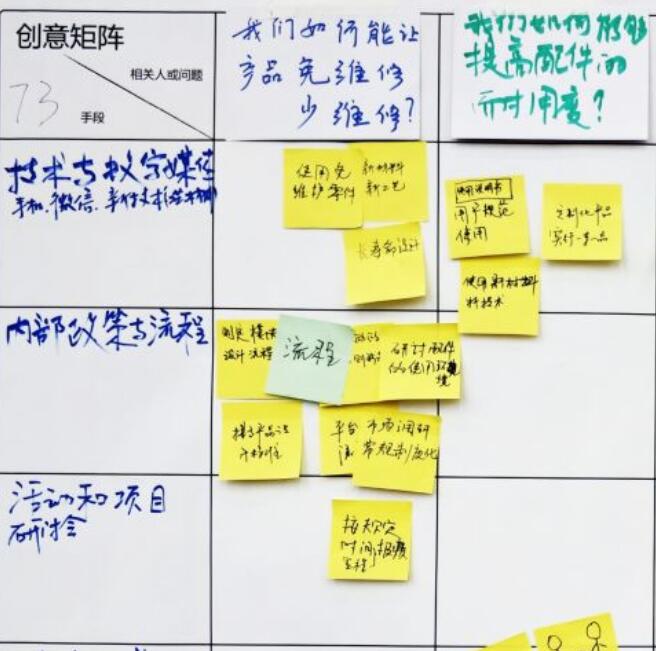 创意矩阵
相关人或问题
73
手段
我们如何能让
产品免维修
少维修?
我们如何能够
提高配件的
耐用度?
技术与数字媒体
手机、微信、
使用免
维护零件
新材料
新工艺
长寿命设计
使用说明书
用户规范
使用
定制化产品
实行一车一品
使用新材料
新技术
内部政策与流程
设计流程
流程
研讨配件
的使用环境
平台
市场调研
常规制度化
活动和项目
研讨会
按规定
时间